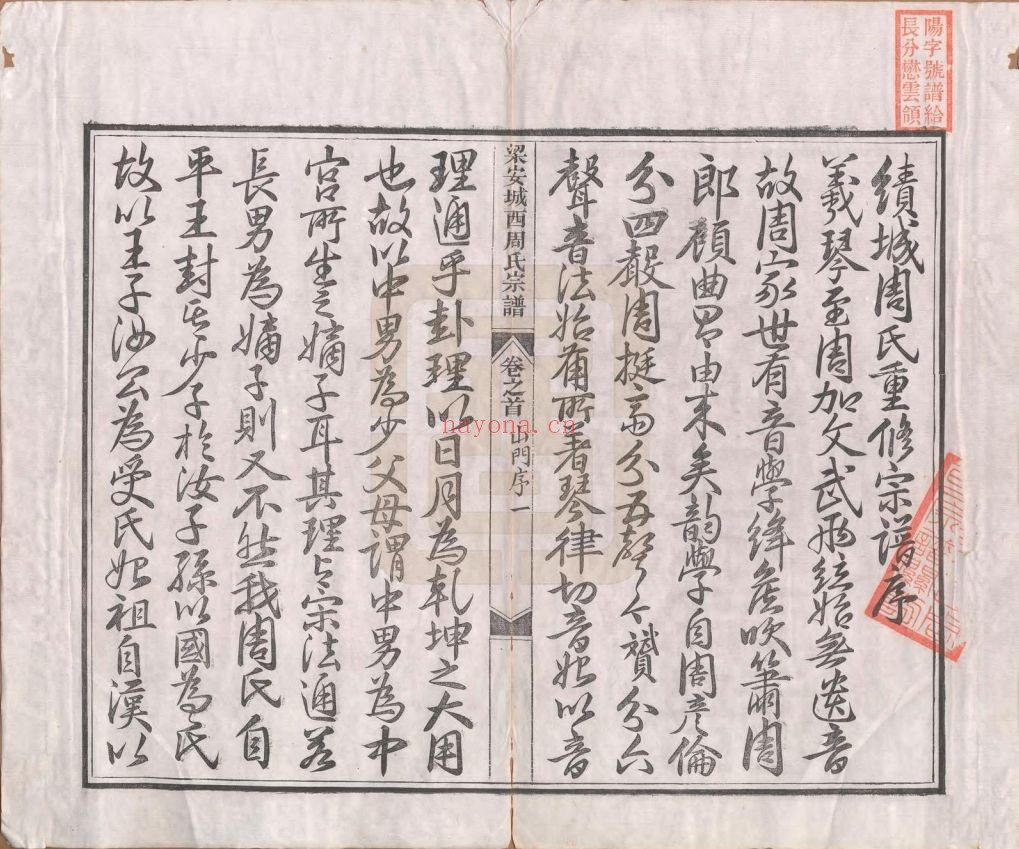 陽字號譜給
長分懋雲領
績城周氏重修宗譜序
羲琴至周加文武兩絃始無遺音
故周家世有音學絳侯吹簫周
郎顧曲其由來矣韵學自周彥倫
分四聲周挺齋分五聲 贇分六
聲音法始備所著琴律切音始以音
梁安城西周氏宗譜
卷之首
門序一
理通乎卦理以日月為乾坤之大用
也故以中男為少父母謂中男為中
宮所生之嫡子耳其理與宗法通若
長男為嫡子則又不然我周氏自
平王封其少子於汝子孫以國為氏
故以王子汝公為受氏始祖自漢以
nayona.cn